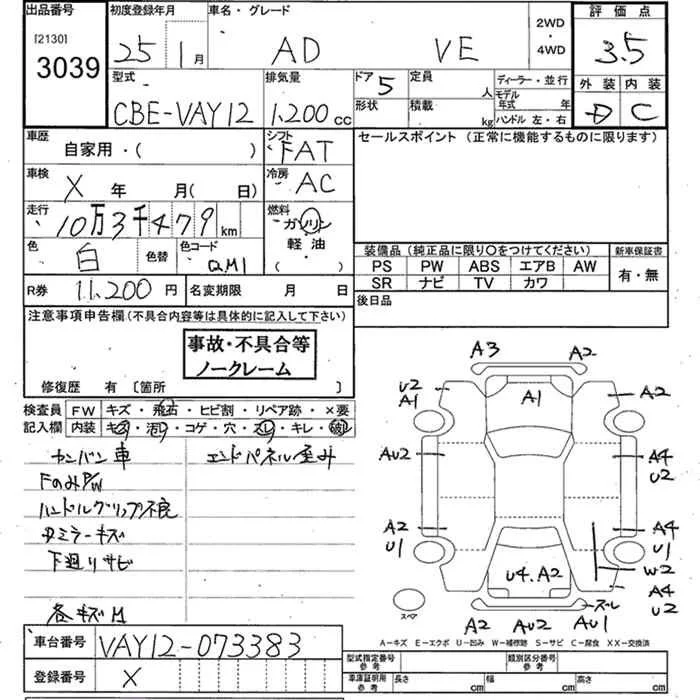 出品番号 初度登録年月 車名・グレード 2WD・4WD 評価点
[2130] 3039 25 1月 AD VE 3.5
型式 排気量 ドア 5 定員 人 ディーラー・並行 外装 内装
CBE-VAY12 1,200cc 形状 積載 kg モデル年式 年 D C
ハンドル 左・右
車歴 自家用・( ) シフト FAT セールスポイント (正常に機能するものに限ります)
車検 X 年 月( 日) 冷房 AC
走行 10万3千479km 燃料 ガソリン
軽油
( )
色 白 色替 色コード QM1
装備品 (純正品に限り○をつけてください) 新車保証書
PS PW ABS エアB AW 有・無
SR ナビ TV カワ
R券 11,200円 名変期限 月 日 後日品
注意事項申告欄(不具合内容等は具体的に記入して下さい)
事故・不具合等
ノークレーム
修復歴 有 〔箇所 〕
検査員 FW キズ・飛石・ヒビ割・リペア跡・×要
記入欄 内装 キズ・汚レ・コゲ・穴・スレ・キレ・破レ
カンバン車 エンドパネル歪み
FのみP/W
ハンドルグリップ不良
ミラーキズ
下廻りサビ
各キズM
A3 A2
U2 A1 A1 A2
AU2 A4 U2
A2 U1 A4 U1
U4.A2 W2
A4 U2
スペア スレ
A2 AU2 AU1
A-キズ E-エクボ U-凹み W-補修跡 S-サビ C-腐食 XX-交換済
車台番号 VAY12-073383
登録番号 X
型式指定番号 参考 類別区分番号 参考
車庫証明用 参考 長さ cm 幅 cm 高さ cm